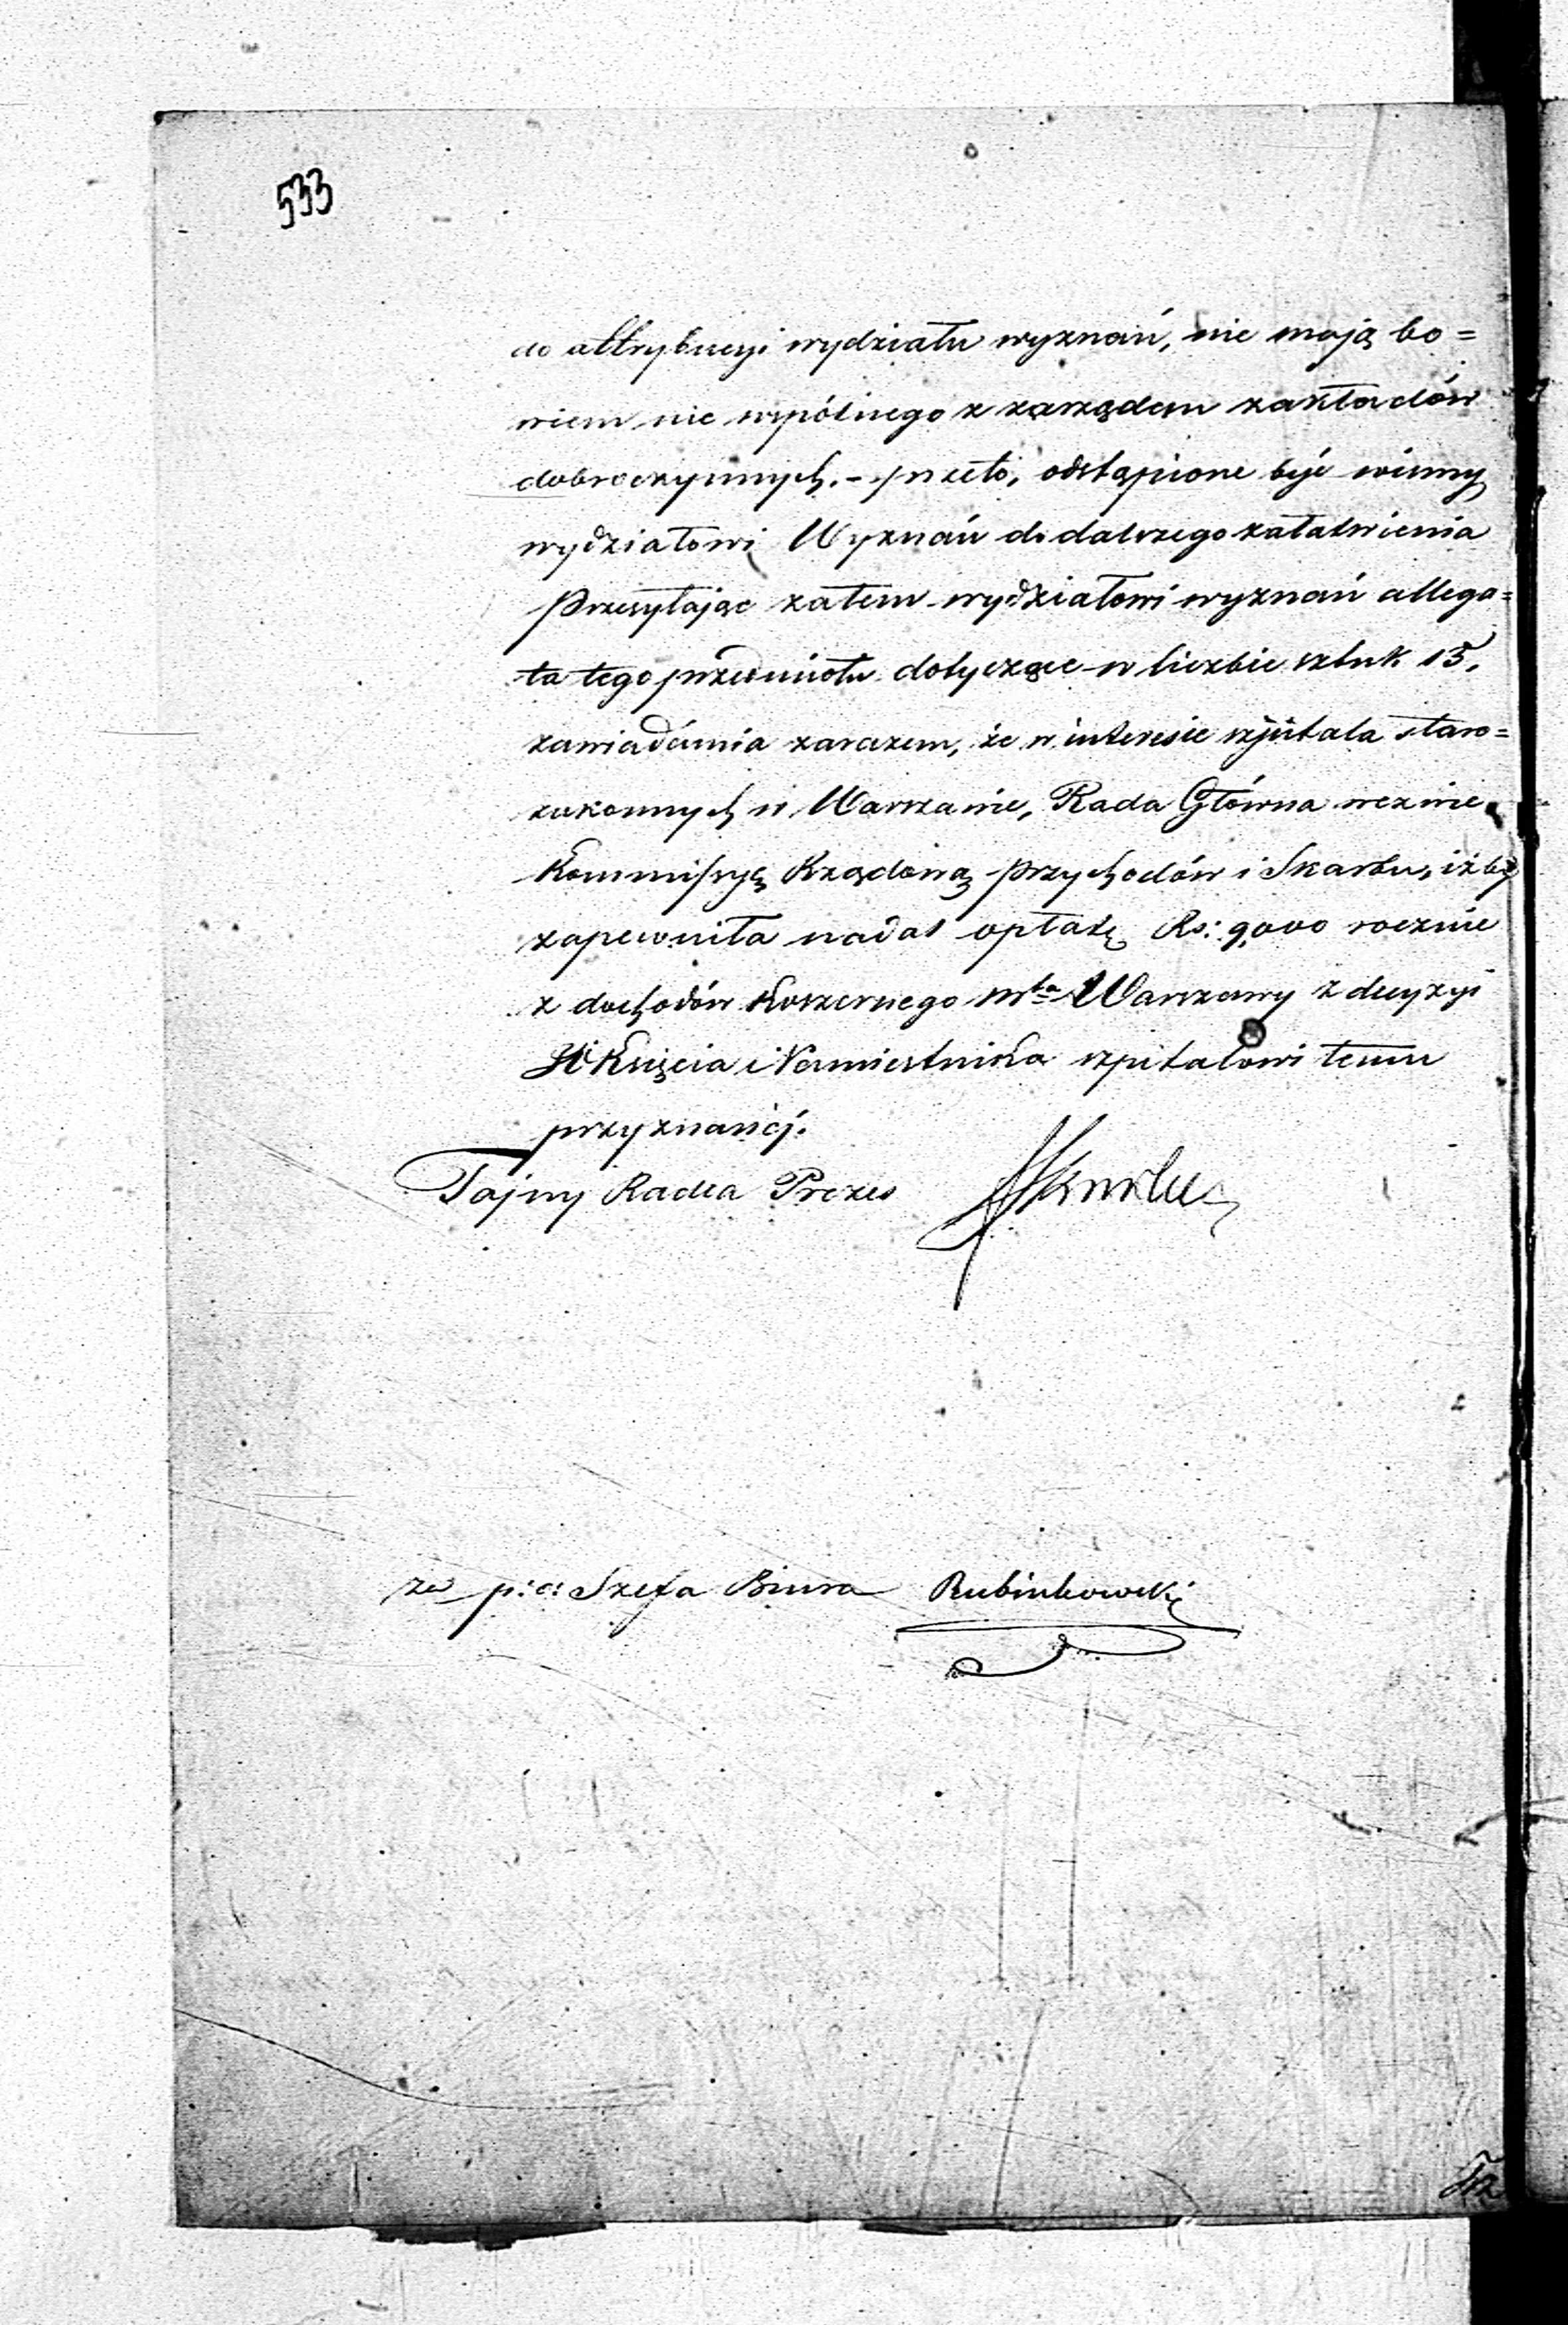 533
do attrybucyi wydziału wyznań, nie mają bo=
wiem nic wspólnego z zarządem zakładów
dobroczynnych. – przeto, odstąpione być winny
wydziałowi Wyznań do dalszego załatwienia
Przesyłając zatem wydziałowi wyznań allega=
ta tego przedmiotu dotyczące w liczbie sztuk 15,
zawiadamia zarazem, że w interesie szpitala staro=
zakonnych w Warszawie, Rada Główna wezwie
Kommissyą Rządową Przychodów i Skarbu, iżby
zapewniła nadal opłatę Rs: 9,000 rocznie
z dochodów Koszernego mta Warszawy z decyzyi
Księcia Namiestnika szpitalowi temu
przyznanéj.
Tajny Radca Prezes
za p: o: Szefa Biura Rubinkowski